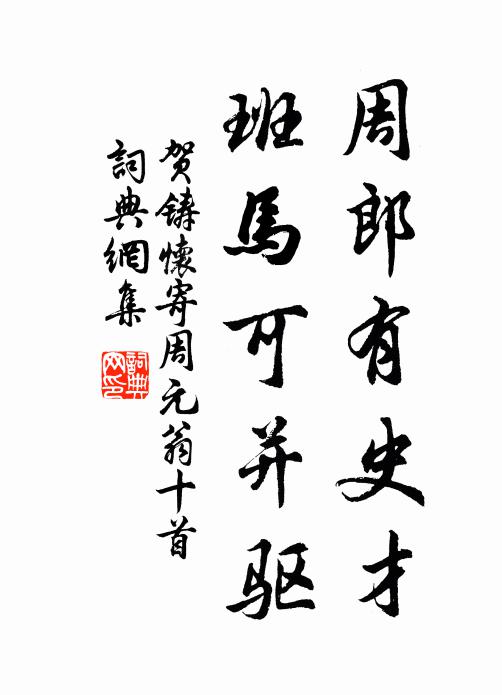 周郎有史才
班馬可并驱
贺鑄懷寄周元翁十首
詞典網集
詞典网印